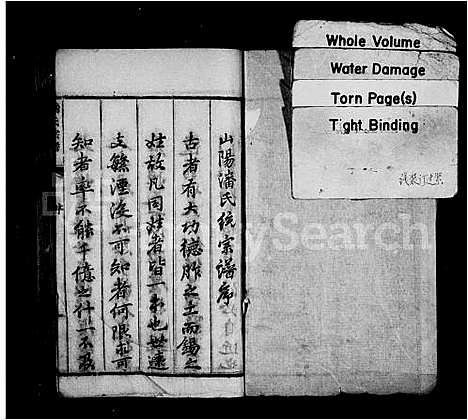 Whole Volume
Water Damage
Torn Page(s)
Tight Binding
山陽潘氏統宗譜序
古者有大功德胙之土而錫之
姓故凡同姓者皆一本也世遠
支繁湮沒不可知者何限而可
知者率不能千億之什一不及